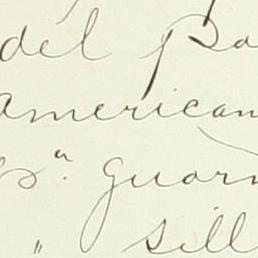 del Pa
american
rs". guarn
" sill